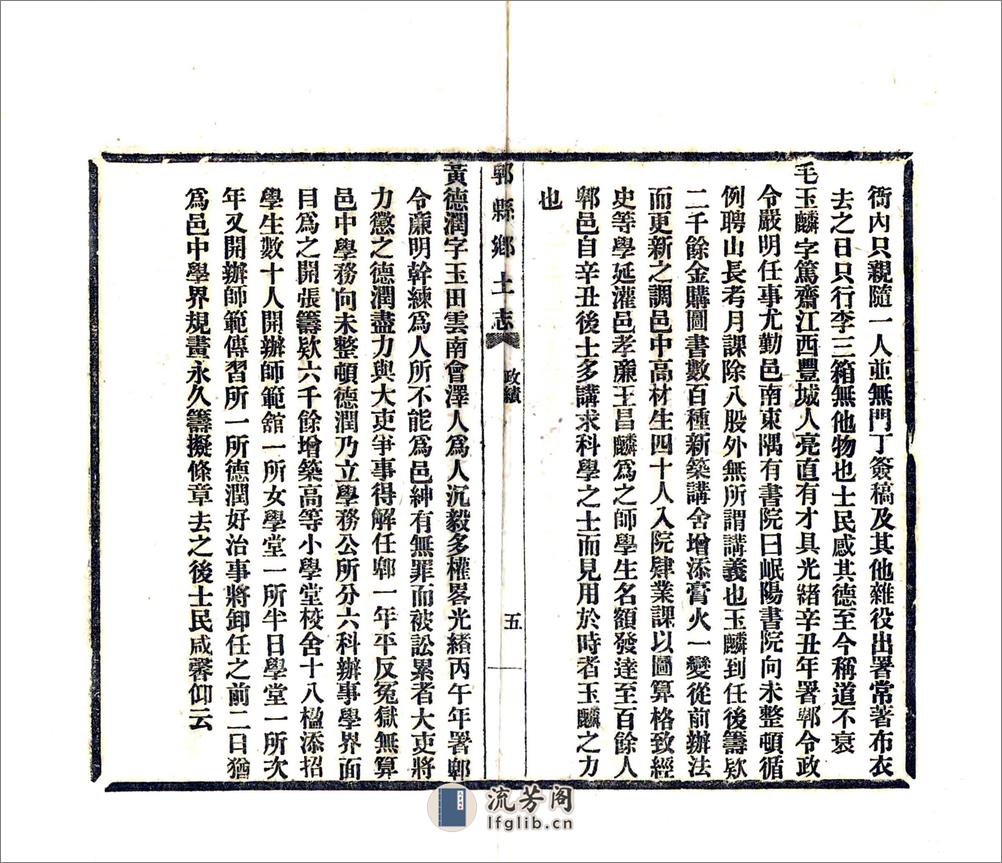 衙內只親隨一人並無門丁簽稿及其他雜役出署常著布衣
去之日只行李三箱無他物也士民感其德至今稱道不衰
毛玉麟字篤齋江西豐城人亮直有才具光緒辛丑年署郫令政
令嚴明任事尤勤邑南東隅有書院曰岷陽書院向未整頓循
例聘山長考月課除八股外無所謂講義也玉麟到任後籌欵
二千餘金購圖書數百種新築講舍增添膏火一變從前辦法
而更新之調邑中高材生四十人入院肄業課以圖算格致經
史等學延灌邑孝亷王昌麟爲之師學生名額發達至百餘人
郫邑自辛丑後士多講求科學之士而見用於時者玉麟之力
也
郫縣鄉土志 政績 五
黃德潤字玉田雲南會澤人爲人沉毅多權畧光緒丙午年署郫
令亷明幹練爲人所不能爲邑紳有無罪而被訟累者大吏將
力懲之德潤盡力與大吏爭事得解任郫一年平反冤獄無算
邑中學務向未整頓德潤乃立學務公所分六科辦事學界面
目爲之開張籌欵六千餘增築高等小學堂校舍十八楹添招
學生數十人開辦師範舘一所女學堂一所半日學堂一所次
年又開辦師範傳習所一所德潤好治事將卸任之前二日猶
爲邑中學界規畫永久籌擬條章去之後士民咸馨仰云
流芳阁
lfglib.cn